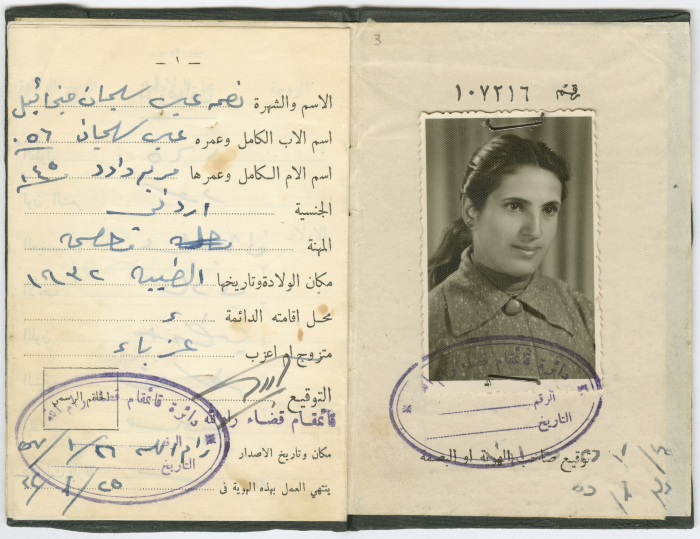 - ١ -
الاسم والشهرة نعمه عيسى سليمان ميخائيل
اسم الاب الكامل وعمره عيسى سليمان ٥٦
اسم الام الكامل وعمرها مريم داود ٤٥
الجنسية اردني
المهنة
مكان الولادة وتاريخها الطيبه ١٩٣٢
محل اقامته الدائمة
متزوج ام اعزب عزباء
التوقيع
الخاتم الرسمي
قائمقام قضاء رام الله
مكان وتاريخ الاصدار رام الله ٢٦/١/٥٧
ينتهي العمل بهذه الهوية في ٢٥/١/
دائرة قائمقام قضاء رام الله
الرقم
التاريخ
3
رقم ١٠٧٢١٦
دائرة قائمقام قضاء رام الله
الرقم
التاريخ
توقيع صاحب الهوية او البصمة